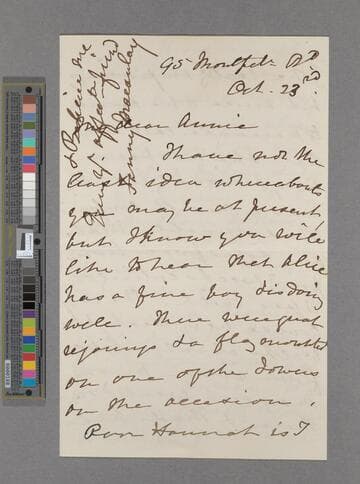 95 Montpelr Rd
Oct. 23rd.
My dear Annie
I have not the
least idea whereabouts
you may be at present,
but I know you will
like to hear that Alice
has a fine boy & is doing
well. There were great
rejoicings & a flag mounted
on one of the towers
on the occasion.
Poor Hannah is I
& Believe me
your affect. friend
Fanny Macaulay